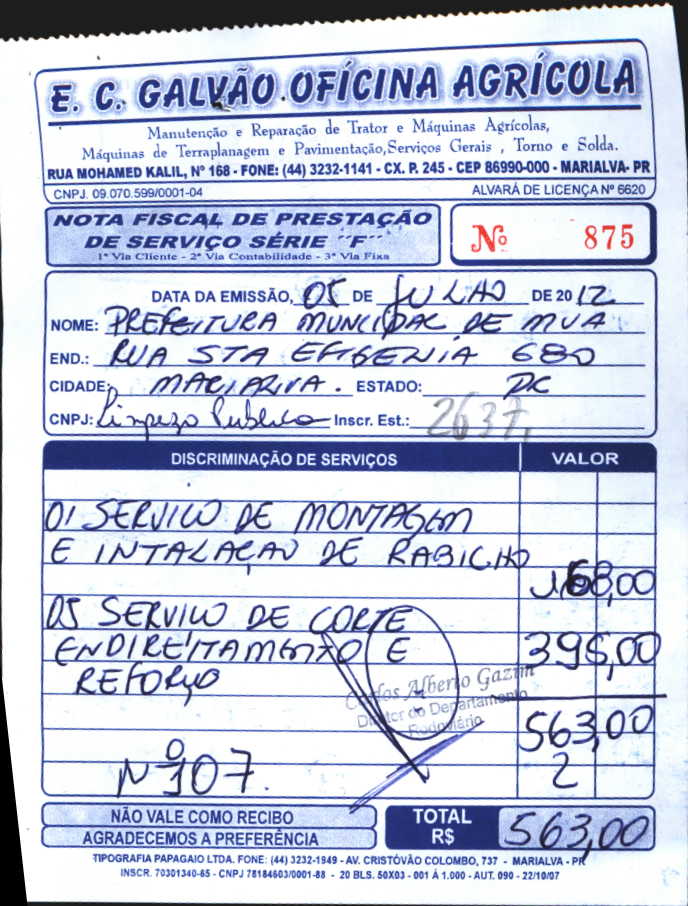 E. C. GALVÃO OFÍCINA AGRÍCOLA
Manutenção e Reparação de Trator e Máquinas Agrícolas,
Máquinas de Terraplanagem e Pavimentação,Serviços Gerais , Torno e Solda.
RUA MOHAMED KALIL, Nº 168 - FONE: (44) 3232-1141 - CX. P. 245 - CEP 86990-000 - MARIALVA- PR
CNPJ. 09.070.599/0001-04 ALVARÁ DE LICENÇA Nº 6620
NOTA FISCAL DE PRESTAÇÃO
DE SERVIÇO SÉRIE ´´F´´
1ª Via Cliente - 2ª Via Contabilidade - 3ª Via Fixa
Nº 875
DATA DA EMISSÃO, 05 DE JULHO DE 2012
NOME: PREFEITURA MUNICIPAL DE MVA
END.: RUA STA EFIGENIA 680
CIDADE: MARIALVA. ESTADO: PR
CNPJ: Limpeza Publica Inscr. Est.: 2637,
DISCRIMINAÇÃO DE SERVIÇOS VALOR
01 SERVIÇO DE MONTAGEM
E INTALAÇAO DE RABICHO
168,00
05 SERVIÇO DE CORTE
ENDIREITAMENTO E 395,00
REFORÇO
Carlos Alberto Gazim
Diretor do Departamento
Rodoviário
563,00
Nº 107. 2
NÃO VALE COMO RECIBO
AGRADECEMOS A PREFERÊNCIA
TOTAL
R$ 563,00
TIPOGRAFIA PAPAGAIO LTDA. FONE: (44) 3232-1949 - AV. CRISTÓVÃO COLOMBO, 737 - MARIALVA - PR
INSCR. 70301340-65 - CNPJ 78184603/0001-88 - 20 BLS. 50X03 - 001 Á 1.000 - AUT. 090 - 22/10/07